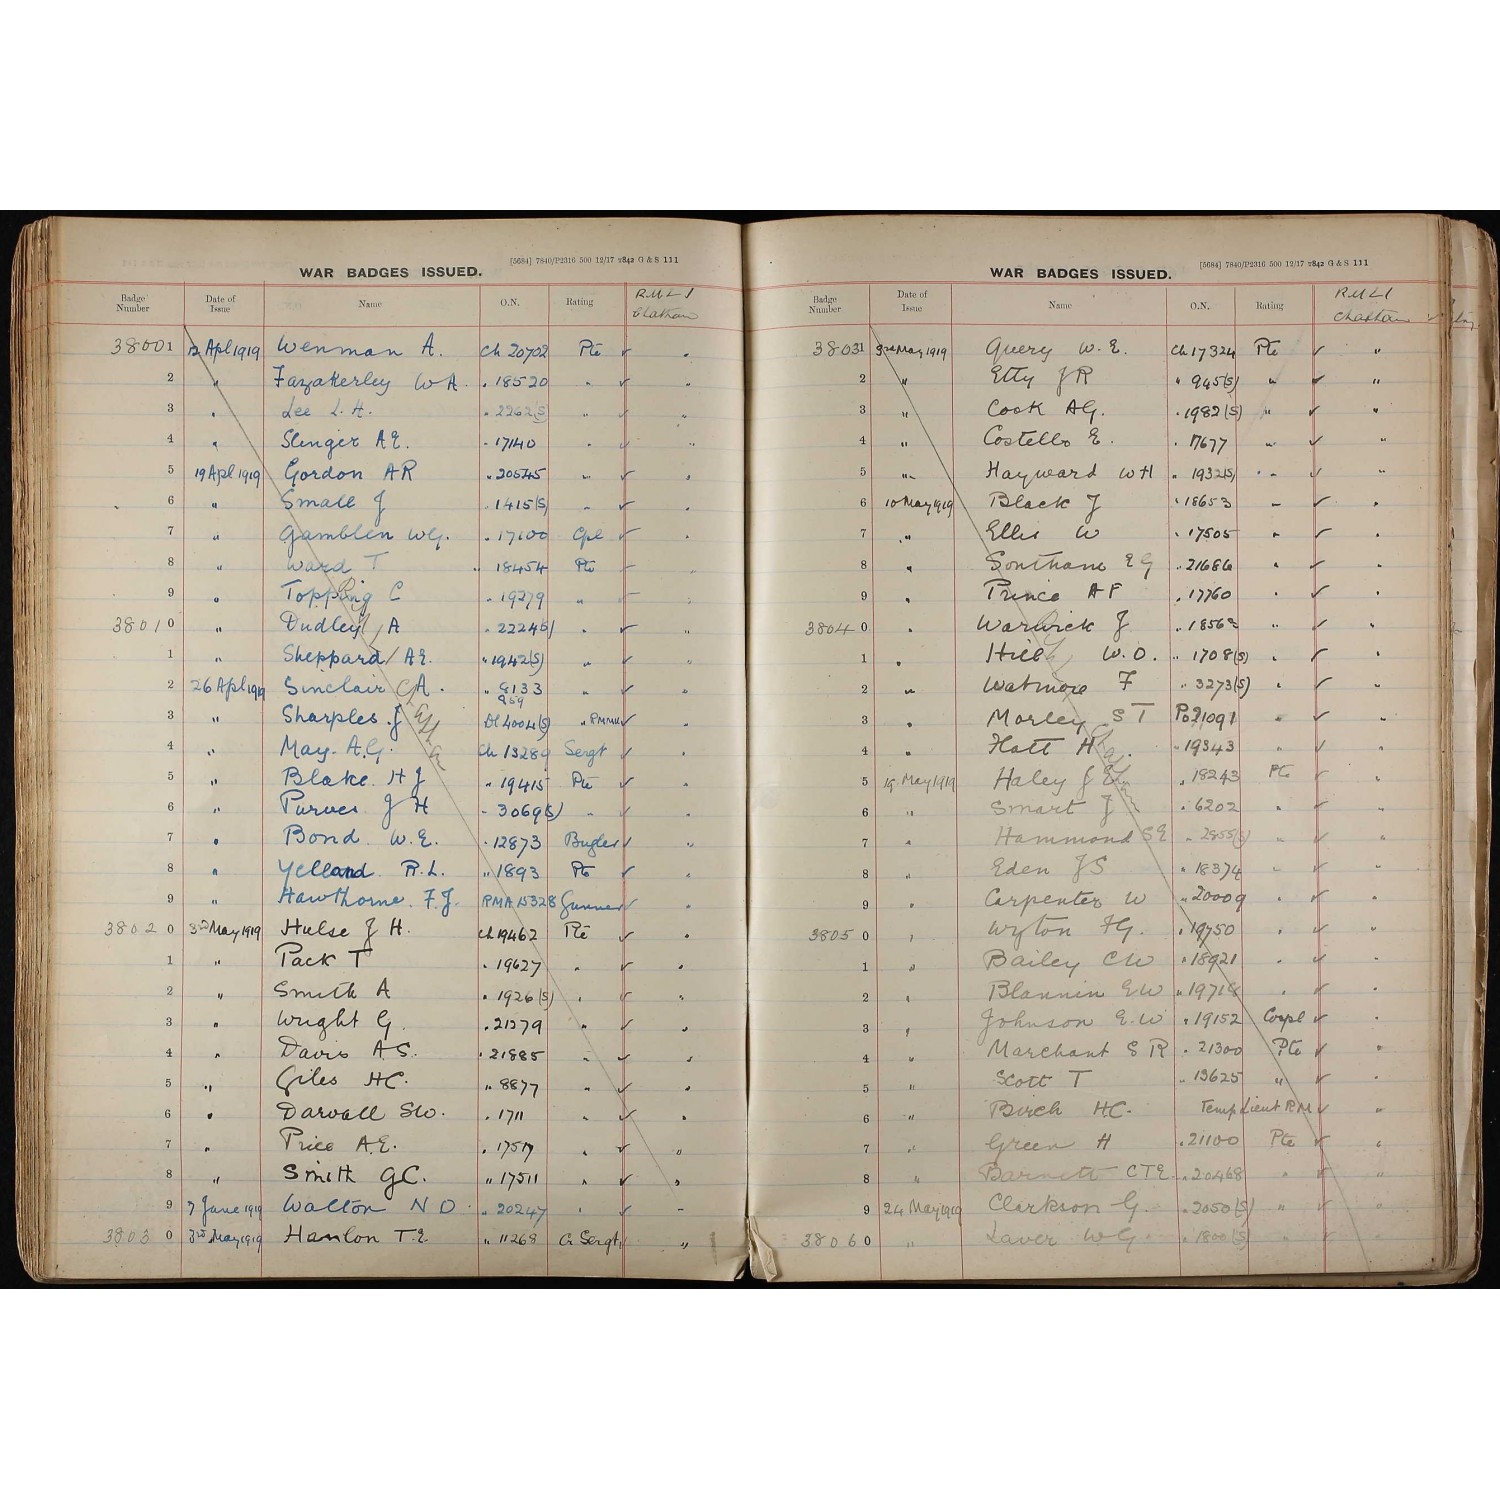 WAR BADGES ISSUED.
[5684] 7840/P2316 500 12/17 7842 G & S 111
Badge Number Date of Issue Name O.N. Rating R.M.L.I Chatham
38001 12 Apl 1919 Wenman A. Ch 20702 Pte ✓ "
2 " Fazakerley W A. " 18520 " ✓ "
3 " Lee L. H. " 2262(S) " ✓ "
4 " Slenger A E. " 17140 " ✓ "
5 19 Apl 1919 Gordon A R " 20545 " ✓ "
6 " Small J " 1415(S) " ✓ "
7 " Gamblen W G. " 17100 Cpl ✓ "
8 " Ward T " 18454 Pte ✓ "
9 " Topping C " 19279 " ✓ "
38010 " Dudley A " 2224(S) " ✓ "
1 " Sheppard A E. " 1942(S) " ✓ "
2 26 Apl 1919 Sinclair C A. " 8133 " ✓ "
3 " Sharples J Dl 4004(S) " ✓ "
4 " May. A. G. Ch 13289 Sergt ✓ "
5 " Blake. H J " 19415 Pte ✓ "
6 " Purves J H " 3069(S) " ✓ "
7 " Bond. W. E. " 12873 Bugler ✓ "
8 " Yelland R. L. " 1893 Pte ✓ "
9 " Hawthorne. F. J. RMA 15328 Gunner ✓ "
38020 3rd May 1919 Hulse J H. Ch 19462 Pte ✓ "
1 " Pack T " 19627 " ✓ "
2 " Smith A " 1926(S) " ✓ "
3 " Wright G. " 21279 " ✓ "
4 " Davis A S. " 21885 " ✓ "
5 " Giles H C. " 8877 " ✓ "
6 " Darvall S W. " 1711 " ✓ "
7 " Price A. E. " 17517 " ✓ "
8 " Smith G C. " 17511 " ✓ "
9 7 June 1919 Walton N O " 20247 " ✓ "
38030 3rd May 1919 Hanlon T. E " 11268 Cr Sergt ✓ "
WAR BADGES ISSUED.
[5684] 7840/P2316 500 12/17 7842 G & S 111
Badge Number Date of Issue Name O.N. Rating R.M.L.I Chatham
38031 3rd May 1919 Query W. E. Ch 17324 Pte ✓ "
2 " Etty J R " 945(S) " ✓ "
3 " Cook A G. " 1982(S) " ✓ "
4 " Costello E. " 17677 " ✓ "
5 " Hayward W H " 1932(S) " ✓ "
6 10 May 1919 Black J " 18653 " ✓ "
7 " Ellis W " 17505 " ✓ "
8 " Southam E G " 21686 " ✓ "
9 " Prince A F " 17760 " ✓ "
38040 " Warwick J " 1856 " ✓ "
1 " Hill W. O. " 1708(S) " ✓ "
2 " Watmore F " 3273(S) " ✓ "
3 " Morley S T Po 21091 " ✓ "
4 " Flatt H " 19343 " ✓ "
5 19 May 1919 Haley J E " 18243 Pte ✓ "
6 " Smart J " 6202 " ✓ "
7 " Hammond S E " 2855(S) " ✓ "
8 " Eden J S " 18374 " ✓ "
9 " Carpenter W " 20009 " ✓ "
38050 " Wyton F G. " 19750 " ✓ "
1 " Bailey C W " 18921 " ✓ "
2 " Blannin E W " 19718 " ✓ "
3 " Johnson E. W " 19152 Corpl ✓ "
4 " Marchant S R " 21300 Pte ✓ "
5 " Scott T " 13625 " ✓ "
6 " Birch H C. Temp Lieut R M ✓ "
7 " Green H " 21100 Pte ✓ "
8 " Barnett C T E. " 20468 " ✓ "
9 24 May 1919 Clarkson G. " 2050(S) " ✓ "
38060 " Laver W G. " 1800(S) " ✓ "